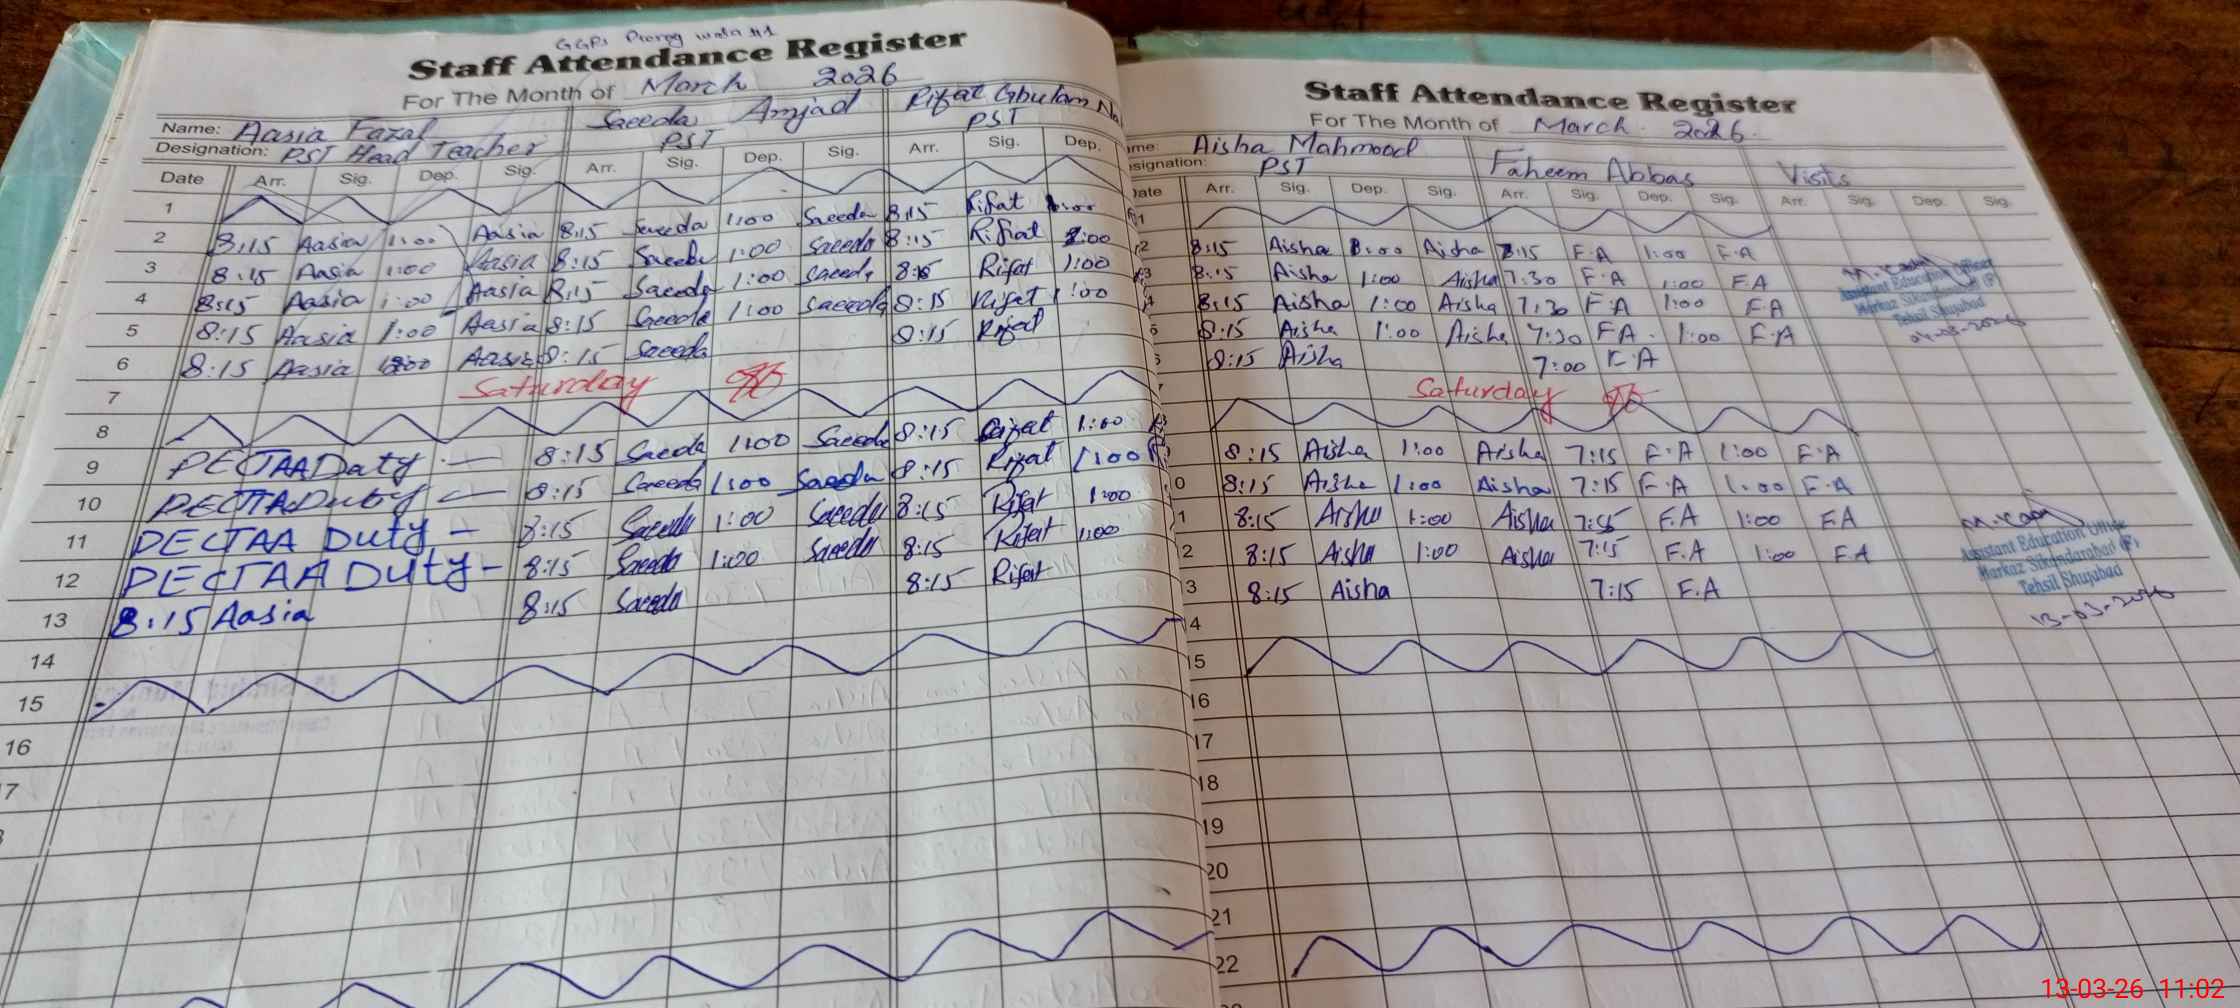 GGPS
Staff Attendance Register
For The Month of March 2026
Name: Aasia Fazal Saeeda Amjad Rifat Ghulam
Designation: PST Head Teacher PST PST
Date Arr. Sig. Dep. Sig. Arr. Sig. Dep. Sig. Arr. Sig. Dep.
1
2 8:15 Aasia 1:00 Aasia 8:15 Saeeda 1:00 Saeeda 8:15 Rifat
3 8:15 Aasia 1:00 Aasia 8:15 Saeeda 1:00 Saeeda 8:15 Rifat 1:00
4 8:15 Aasia 1:00 Aasia 8:15 Saeeda 1:00 Saeeda 8:15 Rifat 1:00
5 8:15 Aasia 1:00 Aasia 8:15 Saeeda 1:00 Saeeda 8:15 Rifat 1:00
6 8:15 Aasia Aasia 8:15 Saeeda 8:15 Rifat
7 Saturday
8
9 PECTAA Duty - 8:15 Saeeda 1:00 Saeeda 8:15 Rifat 1:00
10 PECTAA Duty - 8:15 Saeeda 1:00 Saeeda 8:15 Rifat 1:00
11 PECTAA Duty - 8:15 Saeeda 1:00 Saeeda 8:15 Rifat 1:00
12 PECTAA Duty - 8:15 Saeeda 1:00 Saeeda 8:15 Rifat 1:00
13 8:15 Aasia 8:15 Saeeda 8:15 Rifat
14
15
16
7
Staff Attendance Register
For The Month of March 2026
me: Aisha Mahmood Faheem Abbas Visits
signation: PST
Date Arr. Sig. Dep. Sig. Arr. Sig. Dep. Sig. Arr. Sig. Dep. Sig.
1
2 8:15 Aisha Aisha F.A 1:00 F.A
3 8:15 Aisha 1:00 Aisha 7:30 F.A 1:00 F.A
4 8:15 Aisha 1:00 Aisha 7:30 F.A 1:00 F.A
8:15 Aisha 1:00 Aisha 7:30 F.A 1:00 F.A
8:15 Aisha 7:00 F.A
Saturday
8:15 Aisha 1:00 Aisha 7:15 F.A 1:00 F.A
0 8:15 Aisha 1:00 Aisha 7:15 F.A 1:00 F.A
1 8:15 Aisha 1:00 Aisha F.A 1:00 F.A
2 8:15 Aisha 1:00 Aisha 7:15 F.A 1:00 F.A
3 8:15 Aisha 7:15 F.A
4
15
16
17
18
19
20
21
22
Assistant Education Officer
Markaz Sikandarabad (F)
Tehsil Shujabad
04-03-2026
Assistant Education Officer
Markaz Sikandarabad (F)
Tehsil Shujabad
13-03-2026
13-03-26 11:02